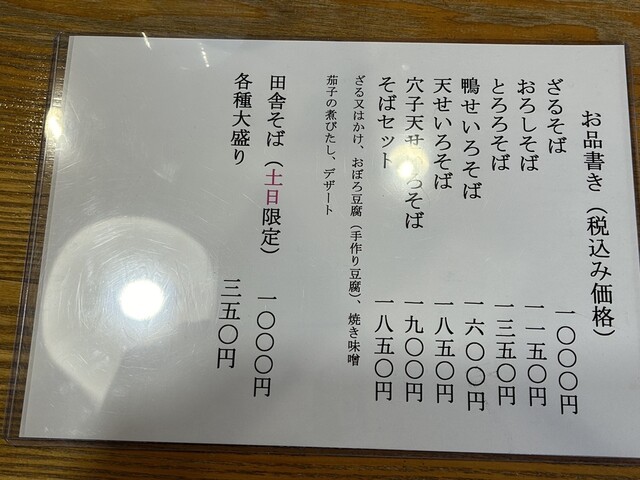 お品書き（税込み価格）
ざるそば 一〇〇〇円
おろしそば 一一五〇円
とろろそば 一三五〇円
鴨せいろそば 一六〇〇円
天せいろそば 一八五〇円
穴子天せいろそば 一九〇〇円
そばセット 一八五〇円
ざる又はかけ、おぼろ豆腐（手作り豆腐）、焼き味噌
茄子の煮びたし、デザート
田舎そば（土日限定） 一〇〇〇円
各種大盛り 三五〇円